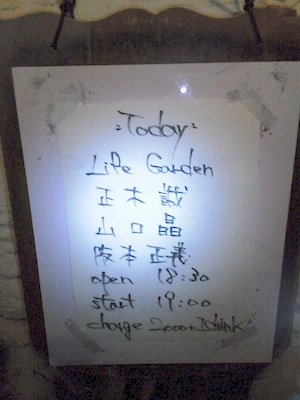 :Today:
Life Garden
正木 誠
山口 晶
阪本 正義
open 18:30
start 19:00
charge 2000+1Drink